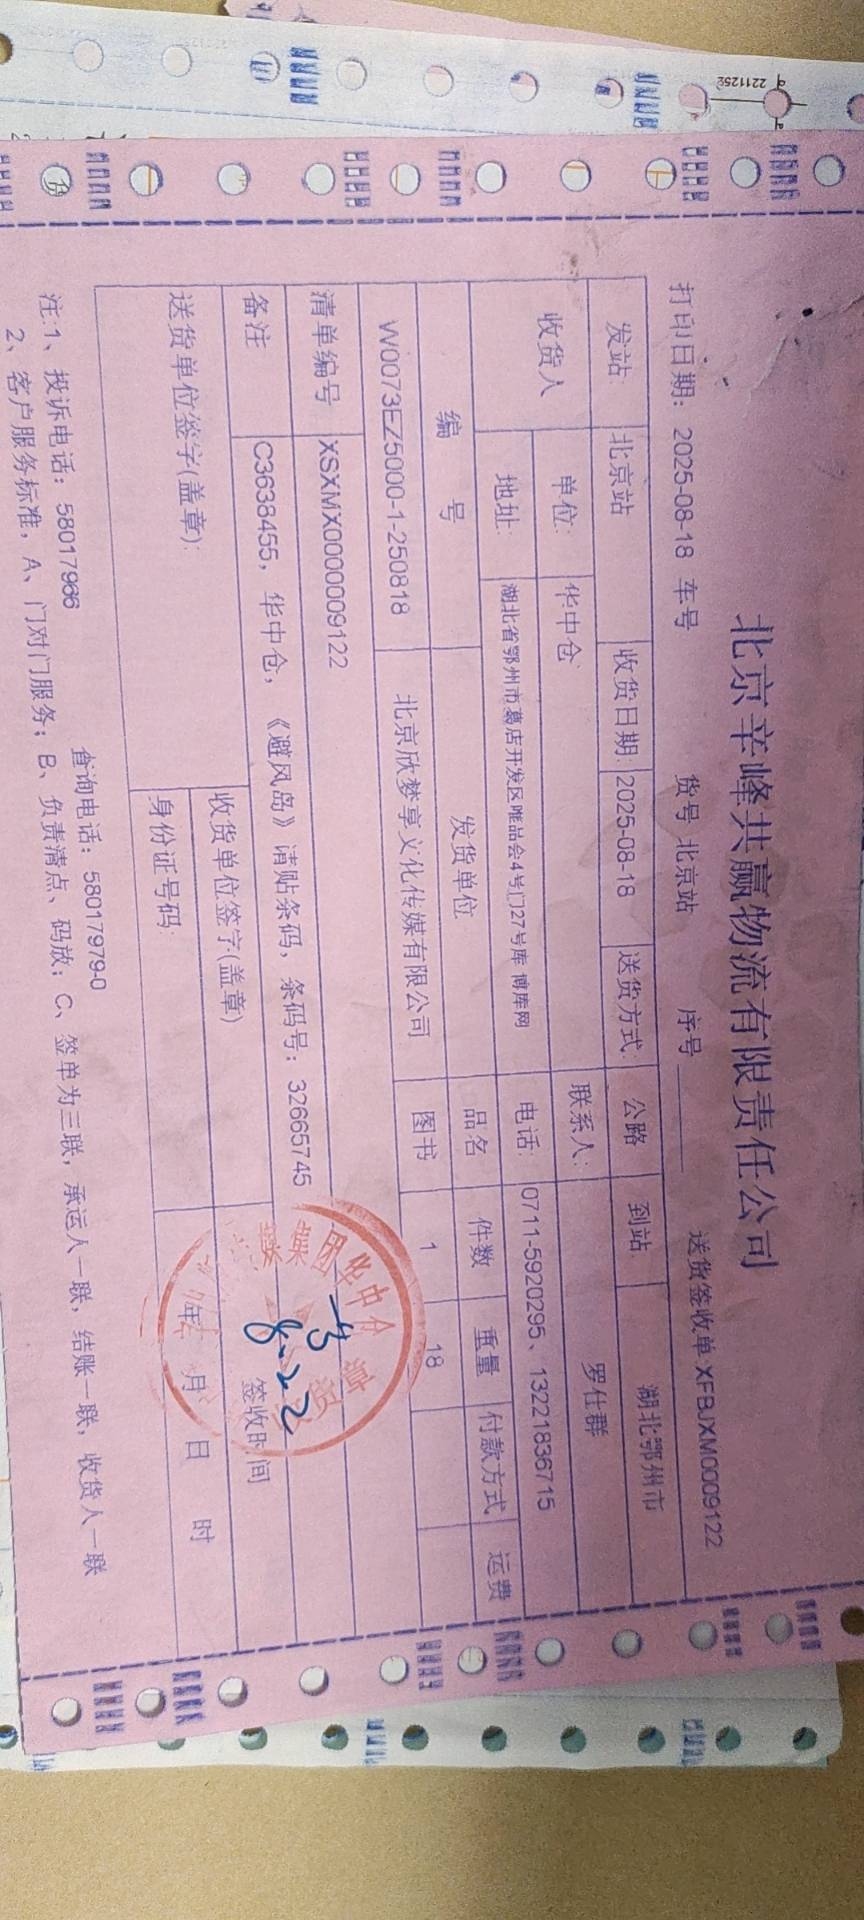 北京辛峰共赢物流有限责任公司
打印日期: 2025-08-18 车号 货号 北京站 序号 送货签收单:XFBJXM0009122
发站: 北京站 收货日期: 2025-08-18 送货方式: 公路 到站: 湖北鄂州市
收货人 单位: 华中仓 联系人: 罗仕群
地址: 湖北省鄂州市葛店开发区唯品会4号门27号库 博库网 电话: 0711-5920295、13221836715
编 号 发货单位 品名 件数 重量 付款方式 运费
W0073EZ5000-1-250818 北京欣梦享文化传媒有限公司 图书 1 18
清单编号 XSXMX0000009122
备注 C3638455, 华中仓, 《避风岛》请贴条码, 条码号: 32665745
送货单位签字(盖章): 收货单位签字(盖章) 签收时间
身份证号码: 年 月 日 时
集团华中仓
8.22
注:1、投诉电话: 58017966 查询电话: 58017979-0
2、客户服务标准, A、门对门服务; B、负责清点、码放; C、签单为三联, 承运人一联, 结账一联, 收货人一联
2211252